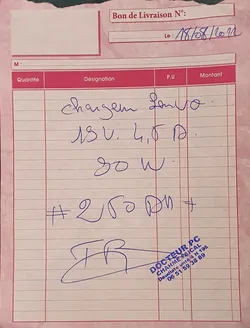 Bon de Livraison N°:
Le : 18/08/2022
M :
Quantité Désignation P.U Montant
chargeur Lenovo
19V. 4,5 A
90 W
# 250 DH #
DOCTEUR PC
06 51 59 38 89